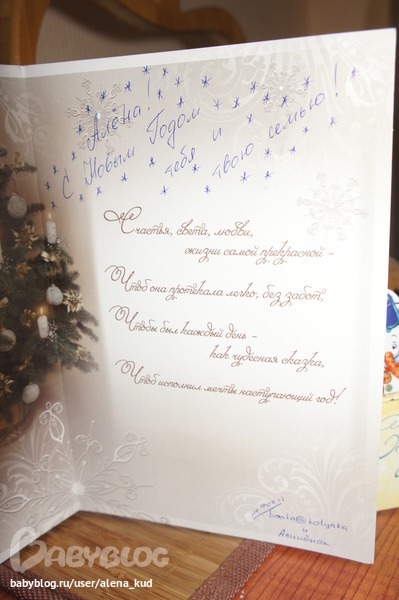 Алёна!
С Новым Годом
тебя и твою семью!
Счастья, света, любви,
жизни самой прекрасной –
Чтоб она протекала легко, без забот,
Чтобы был каждый день –
как чудесная сказка,
Чтоб исполнил мечты наступающий год!
и
BABYBLOG
babyblog.ru/user/alena_kud